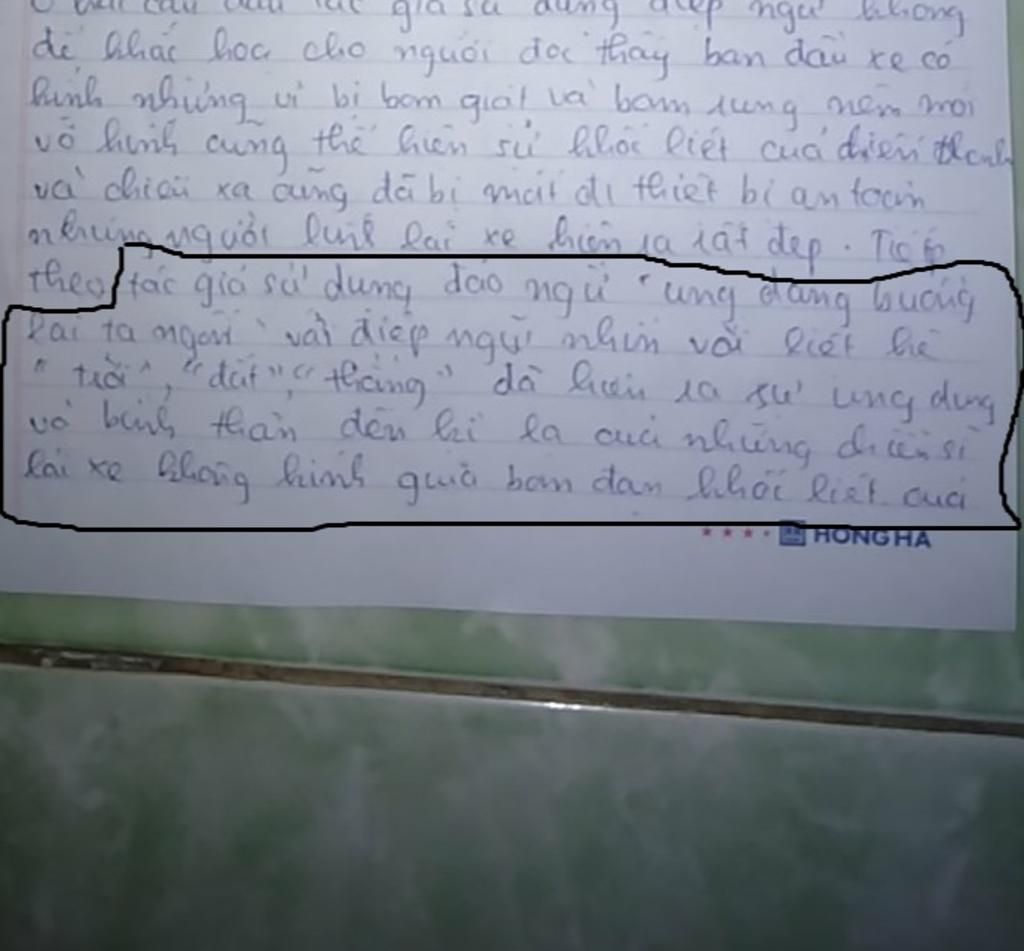 tác giả sử dụng điệp ngữ không
để khắc họa cho người đọc thấy ban đầu xe có
kính nhưng vì bị bom giật và bom rung nên mới
vỡ kính cũng thể hiện sử khốc liệt của chiến tranh
và chiếc xe cũng đã bị mất đi thiết bị an toàn
nhưng người lính lái xe hiện ra rất đẹp. Tiếp
theo tác giả sử dụng đảo ngữ "ung dung buồng
lái ta ngồi" với điệp ngữ nhìn với liết kê
"trời", "đất", "thẳng" đã hiện ra sự ung dung
và bình thản đến kì lạ của những chiến sĩ
lái xe không kính qua bom đạn khốc liết của
HONG HA